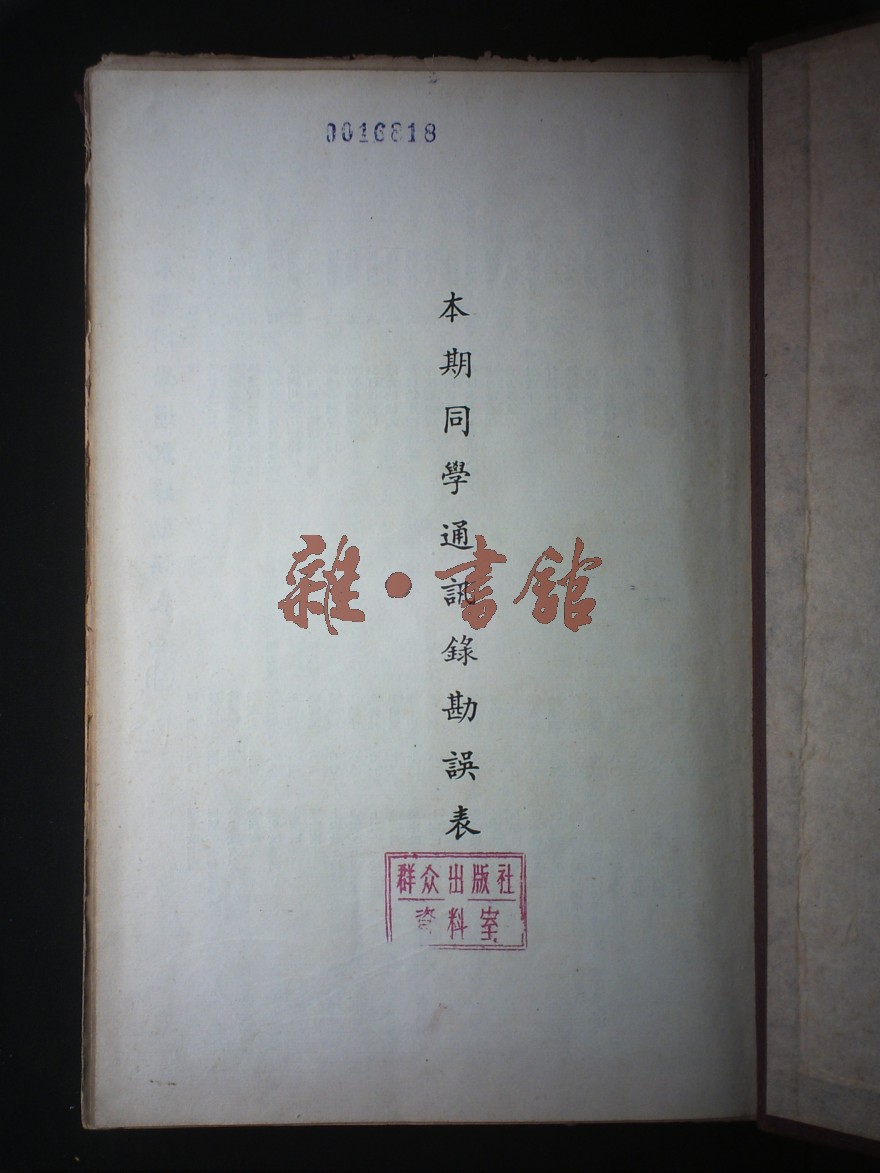 0016818
本期同學通訊錄勘誤表
雜·書館
群众出版社
资料室